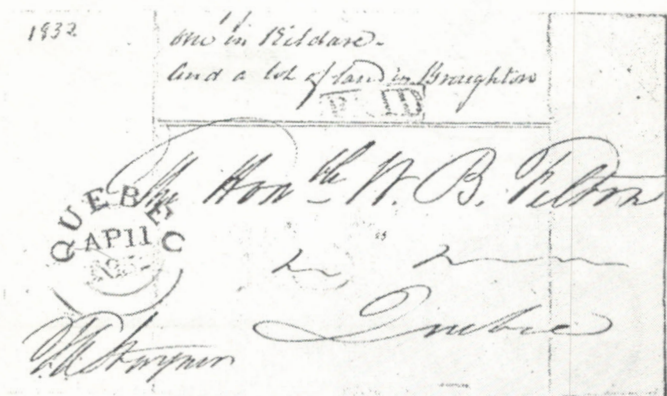 1832
one in Kildare -
and a lot of land in Broughton
PAID
The Honble W. B. Felton
QUEBEC
AP 11
Quebec